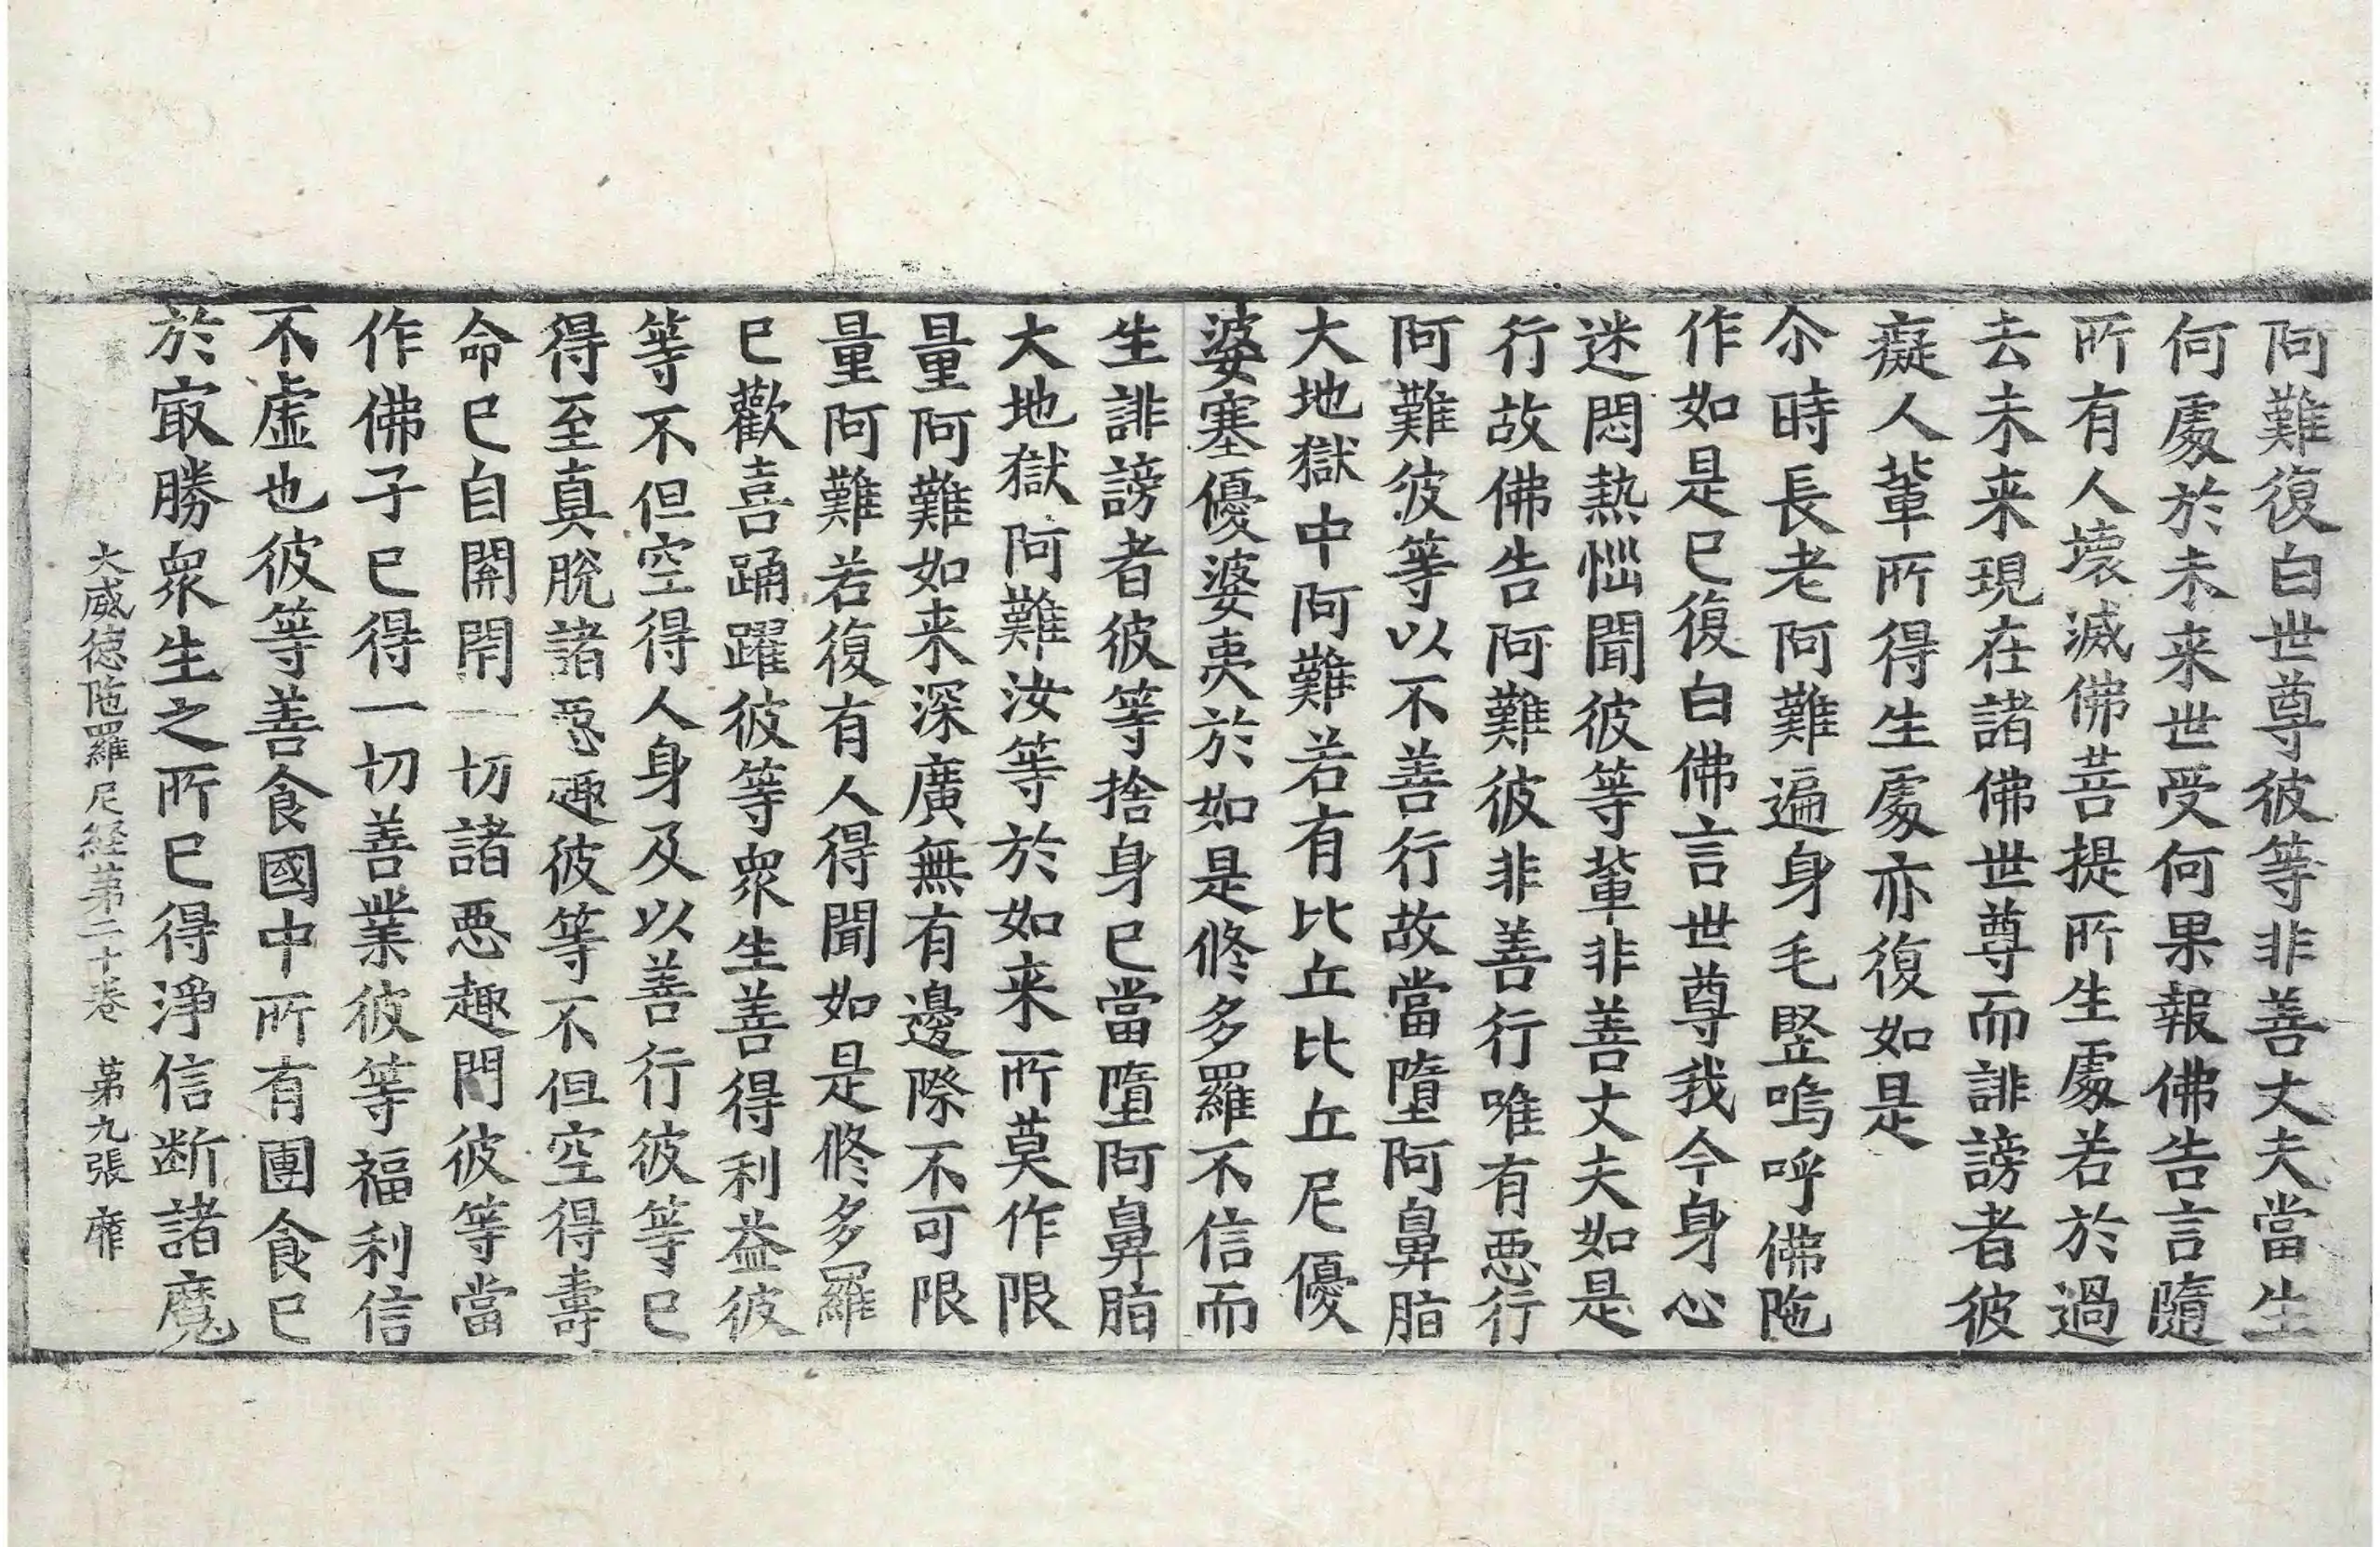 阿難復白世尊彼等非善丈夫當生
何處於未来世受何果報佛告言隨
所有人壞滅佛菩提所生處若於過
去未来現在諸佛世尊而誹謗者彼
癡人軰所得生處亦復如是
尒時長老阿難遍身毛竪嗚呼佛陁
作如是已復白佛言世尊我今身心
迷悶熱惱聞彼等軰非善丈夫如是
行故佛告阿難彼非善行唯有悪行
阿難彼等以不善行故當墮阿鼻脂
大地獄中阿難若有比丘比丘尼優
婆塞優婆夷於如是修多羅不信而
生誹謗者彼等捨身已當墮阿鼻脂
大地獄阿難汝等於如来所莫作限
量阿難如来深廣無有邊際不可限
量阿難若復有人得聞如是修多羅
已歡喜踊躍彼等衆生善得利益彼
等不但空得人身及以善行彼等已
得至真脫諸惡趣彼等不但空得壽
命已自開閇一切諸悪趣門彼等當
作佛子已得一切善業彼等福利信
不虛也彼等善食國中所有團食已
於冣勝衆生之所已得淨信断諸魔
大威德陁羅尼経第二十卷 第九張 靡